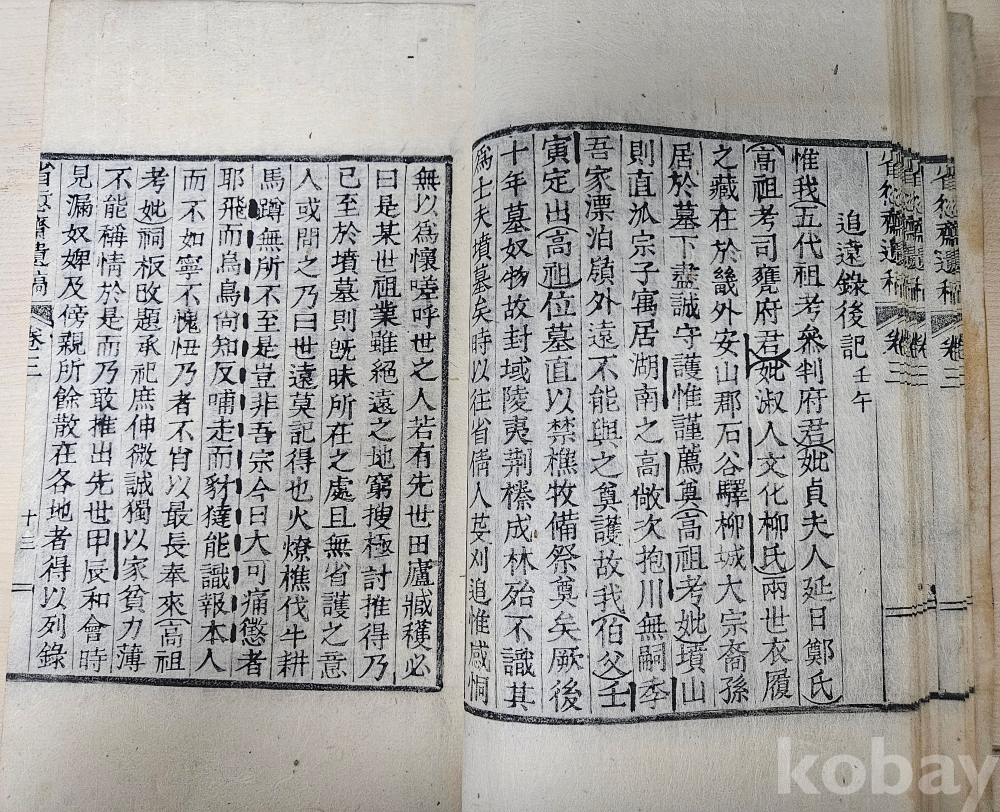 追遠錄後記 壬午
惟我五代祖考參判府君妣貞夫人延日鄭氏
高祖考司甕府君妣淑人文化柳氏兩世衣履
之藏在於畿外安山郡石谷驛柳城大宗裔孫
居於墓下盡誠守護惟謹薦奠高祖考妣墳山
則直派宗子寓居湖南之高敞次抱川無嗣季
吾家漂泊嶺外遠不能與之奠護故我伯父壬
寅定出高祖位墓直以禁樵牧備祭奠矣厥後
十年墓奴物故封域陵夷荆榛成林殆不識其
爲士夫墳墓矣時以往省倩人芟刈追惟感恫
無以爲懷噫呼世之人若有先世田廬臧穫必
曰是某世祖業雖絕遠之地窮搜極討推得乃
已至於墳墓則旣昧所在之處且無省護之意
人或問之乃曰世遠莫記得也火燎樵伐牛耕
馬蹲無所不至是豈非吾宗今日大可痛懲者
耶飛而烏鳥尙知反哺走而豺獺能識報本人
而不如寧不愧忸乃者不肖以最長奉來高祖
考妣祠板改題承祀庶伸微誠獨以家貧力薄
不能稱情於是而乃敢推出先世甲辰和會時
見漏奴婢及傍親所餘散在各地者得以列錄
省愆齋遺稿 卷二 十三
省愆齋遺稿 卷二